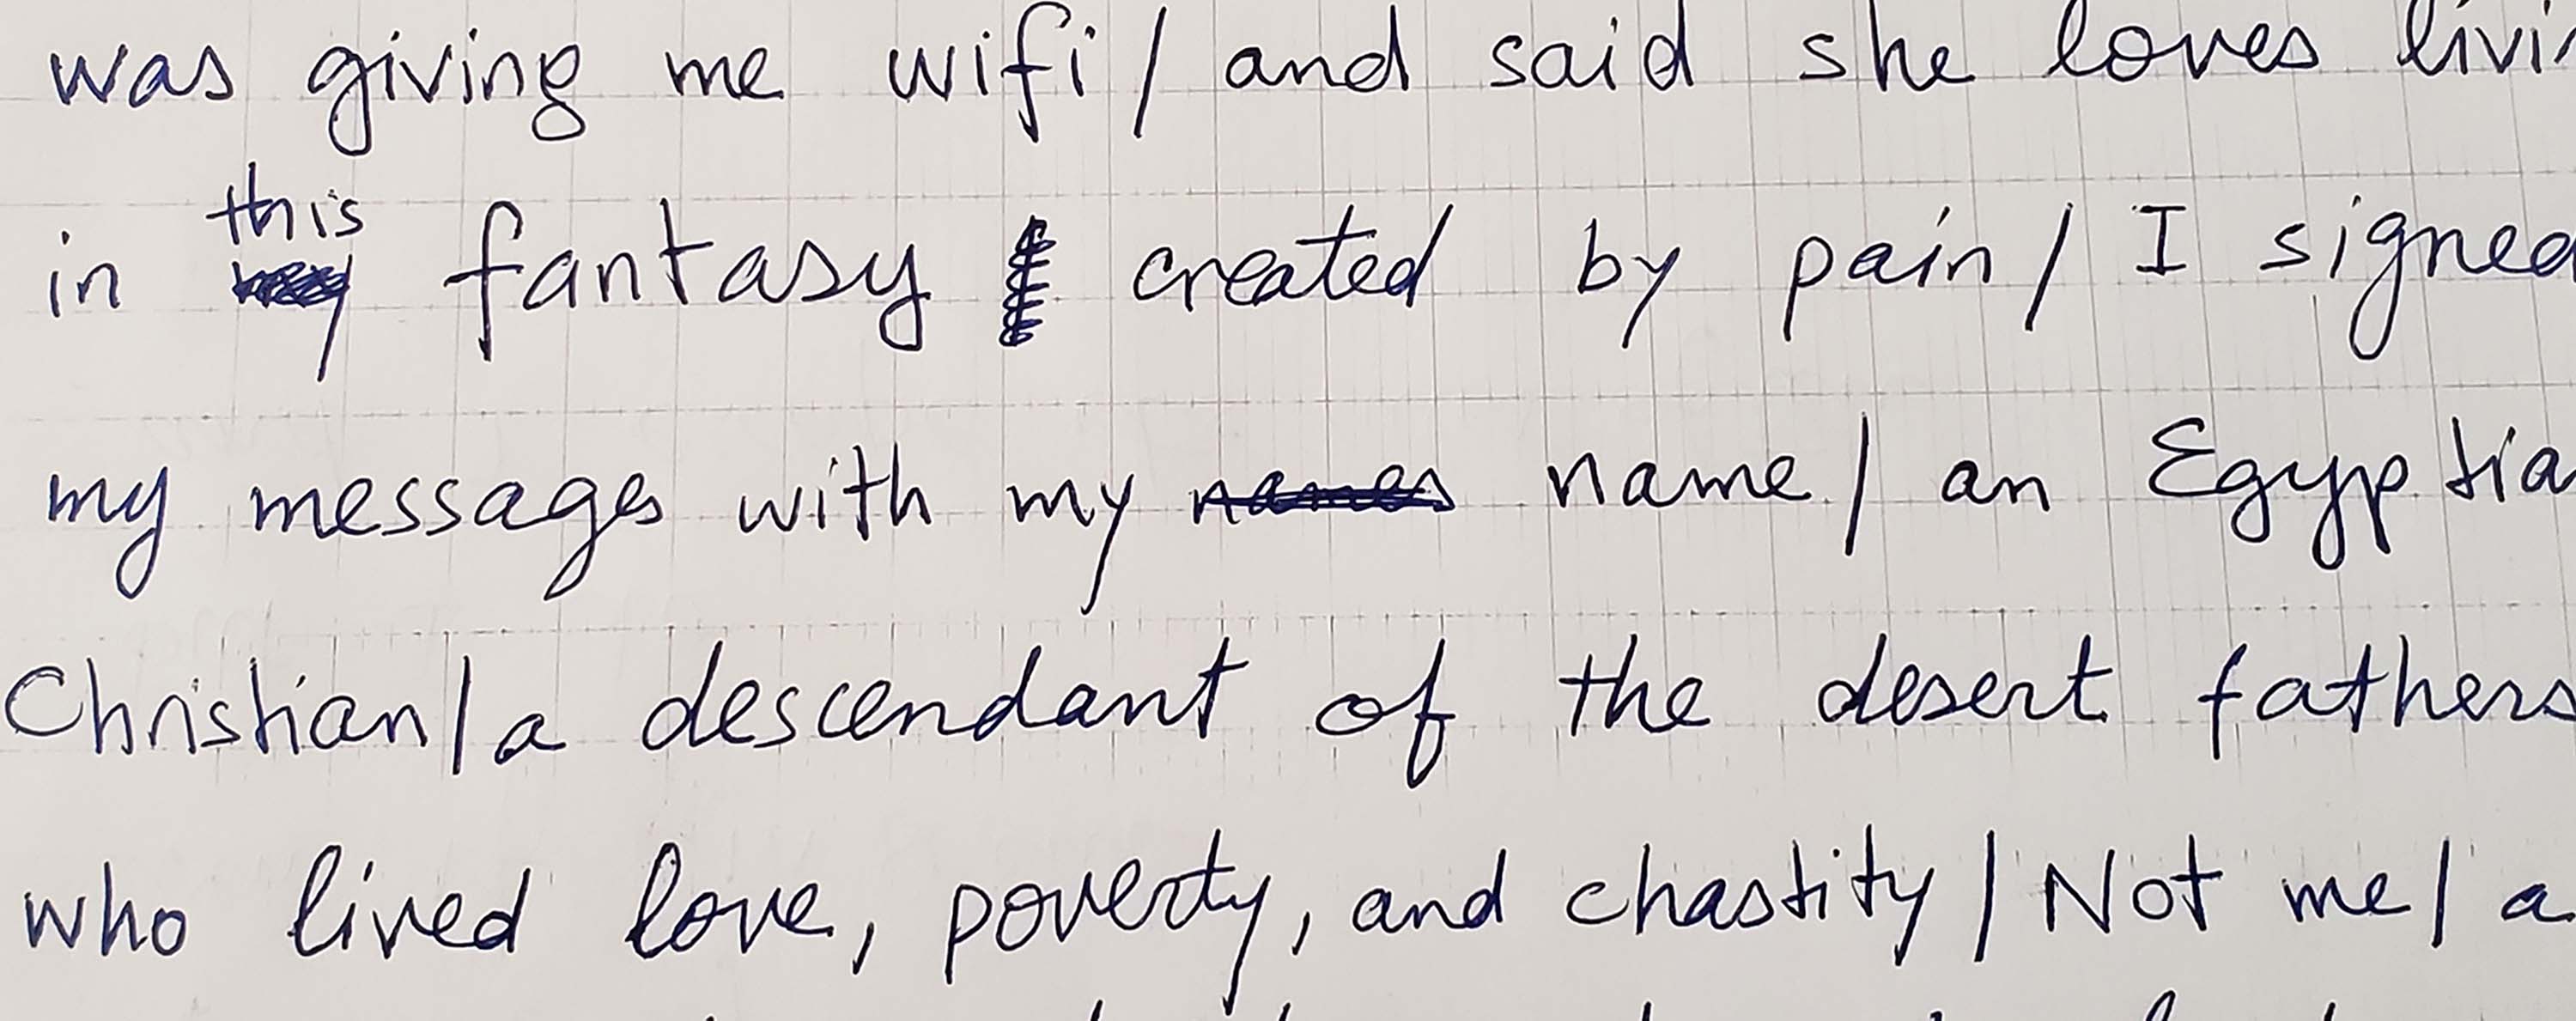 was giving me wifi/ and said she loves livin
in this fantasy created by pain/ I signed
my messages with my names name/ an Egyptia
Christian/ a descendant of the desert fathers
who lived love, poverty, and chastity/ Not me/ a